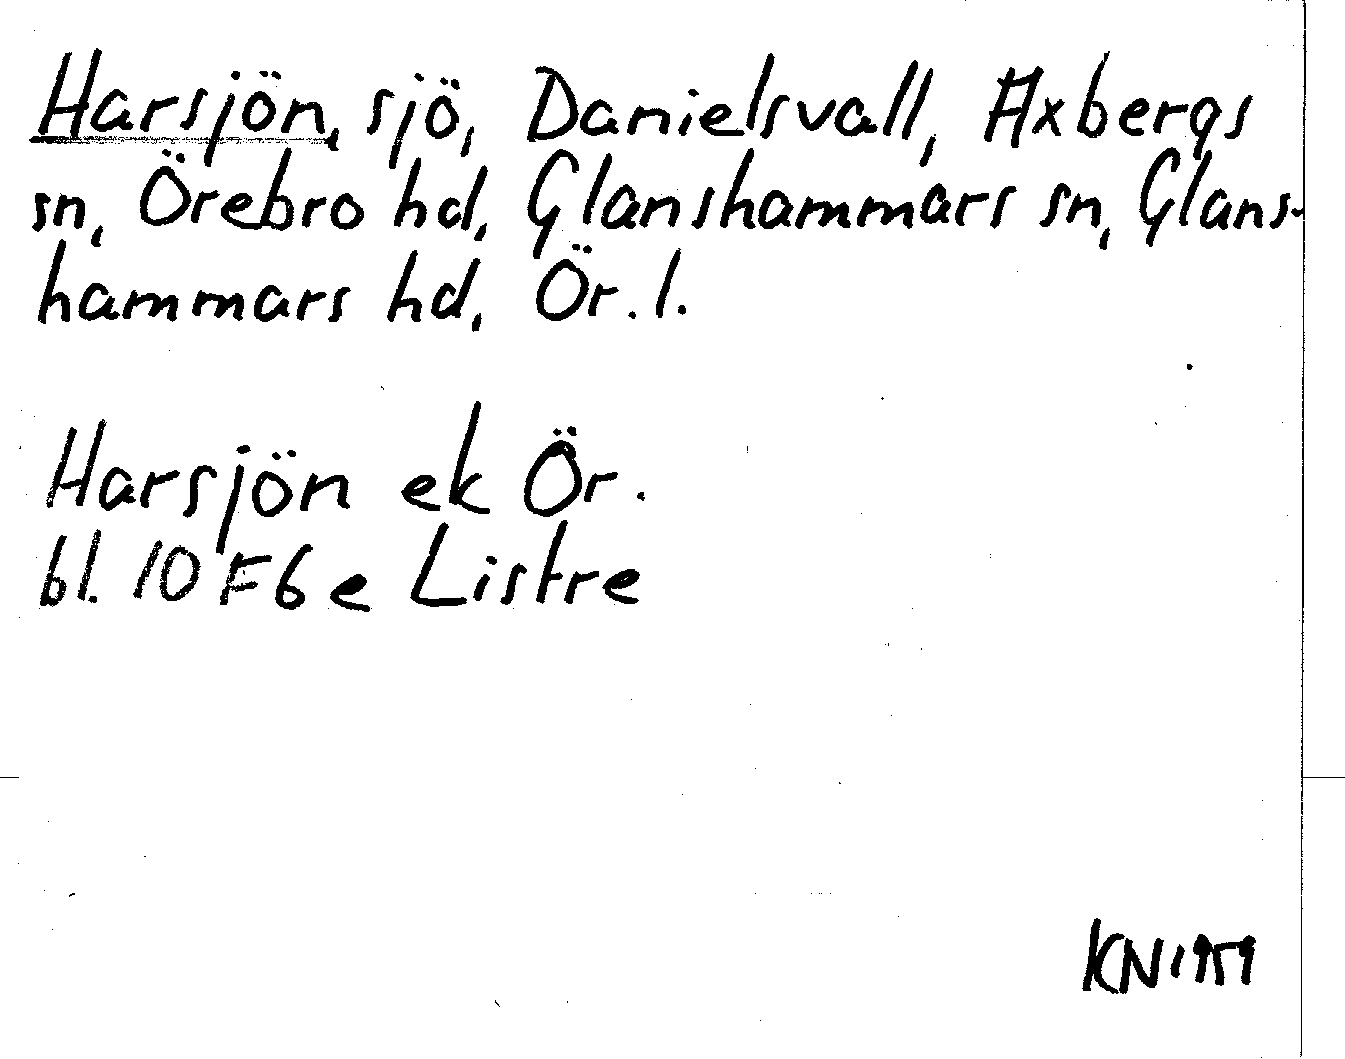 Harsjön, sjö, Danielsvall, Axbergs
sn, Örebro hd, Glanshammars sn, Glans-
hammars hd, Ör. l.
Harsjön ek Ör.
bl. 10 F6e Listre
KN 1959